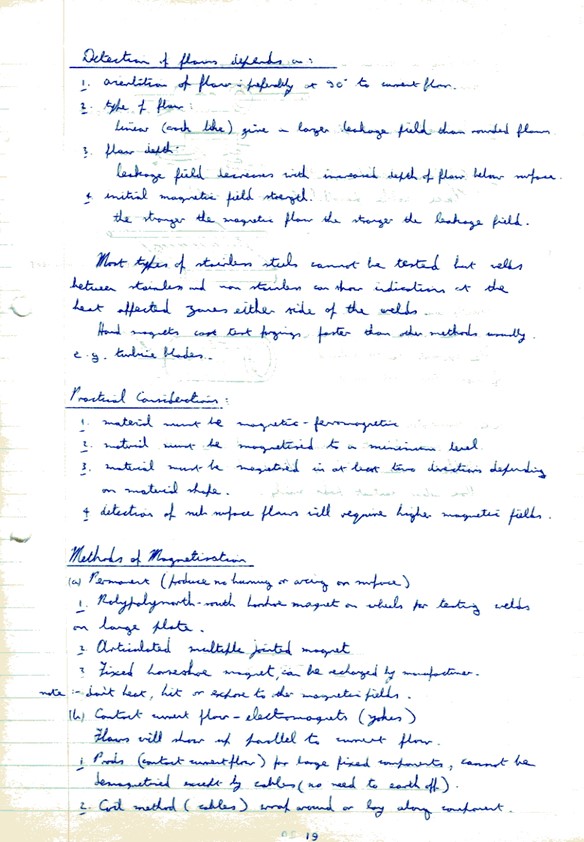 Detection of flaws depends on:
1. orientation of flaw:- preferably at 90° to current flow.
2. type of flaw:
linear (crack like) give a larger leakage field than rounded flaws
3. flaw depth:
leakage field decreases with increased depth of flaw below surface.
4. initial magnetic field strength.
the stronger the magnetic flow the stronger the leakage field.
Most types of stainless steels cannot be tested but welds
between stainless and non stainless can show indications at the
heat affected zones either side of the welds.
Hand magnets can test forgings faster than other methods usually
e.g. turbine blades.
Practical Considerations:
1. material must be magnetic - ferromagnetic
2. material must be magnetised to a minimum level
3. material must be magnetised in at least two directions depending
on material shape.
4 detection of sub surface flaws will require higher magnetic fields.
Methods of Magnetisation
(a) Permanent (produce no burning or arcing on surface)
1. north-south horshoe magnet on wheels for testing welds
on large plate.
2 Articulated multiple jointed magnet
3 Fixed horseshoe magnet, can be recharged by manufacturer.
note :- don't heat, hit or expose to other magnetic fields.
(b) Contact current flow - electromagnets (yokes)
Flaws will show up parallel to current flow.
1 Prods (contact current flow) for large fixed components, cannot be
demagnetised except by cables (no need to earth off).
2. Coil method (cables) wrap around or lay along component.
19